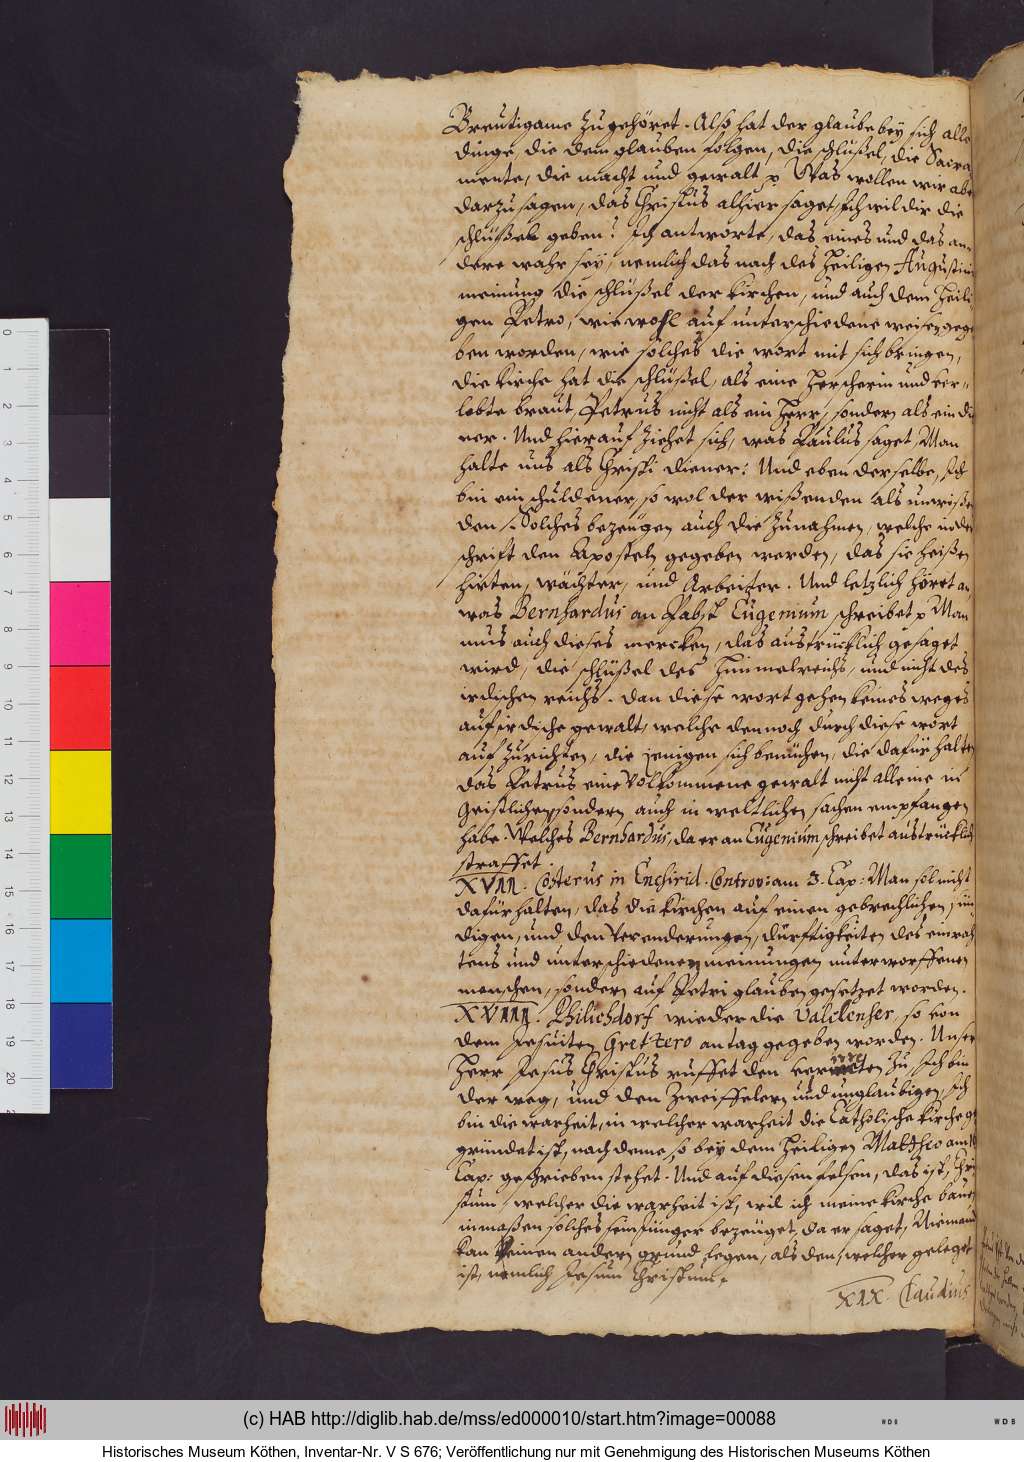 Breutigame zugehöret. Also hat der glaube bey sich alle
dinge, die dem glauben folgen, die schlüßel, die Sacra
mente, die macht und gewalt p Was wollen wir abe
darzu sagen, das Christus alhier saget, Ich wil dir die
schlüßel geben? Ich antworte, das eines und das an-
dere wahr sey, nemlich das nach des Heiligen Augustini
meinung die schlüßel der kirchen, und auch dem Heili-
gen Petro, wiewohl auf unterschiedene weise gege
ben worden, wie solches die wort mit sich bringen,
die kirche hat die schlüßel, als eine Herscherin und ver-
lobte braut, Petrus nicht als ein Herr, sondern als ein di
ner. Und hierauf ziehet sich, was Paulus saget, Man
halte uns als Christi diener: Und eben derselbe, Ich
bin ein schuldener, so wol der wißenden als unwiße
den. Solches bezeugen auch die Zunahmen, welche in de
schrift den Aposteln gegeben werden, das sie heißen
hirten, wächter, und Arbeiter. Und letzlich höret an
was Bernhardus an Pabst Eugenium schreibet p Man
mus auch dieses mercken, das austrücklich gesaget
wird, die schlüßel des Himmelreichs, und nicht des
irdischen reichs. dan diese wort gehen keines weges
auf irdische gewalt, welche dennoch durch diese wort
auf zurichten, die jenigen sich bemühen, die dafür halten
das Petrus eine Volkommene gewalt nicht alleine in
Geistlichen sondern auch in weltlichen sachen empfangen
habe. Welches Bernhardus, da er an Eugenium schreibet austrücklich
straffet.
XVII. Costerus in Enchirid. Controv: am 3. Cap: Man sol nicht
dafür halten, das die kirchen auf einen gebrechlichen,
digen, und den Verenderungen, dürftigkeiten des
tens und unterschiedenen meinungen unterworffenen
menschen, sondern auf Petri glauben gesetzet worden.
XVIII. Philichdorf wieder die Valdenser, so von
dem Jesuiten Grettzero an tag gegeben worden. Unser
Herr Jesus Christus ruffet den zu Ich bin
der weg, und den Zweiffelern und unglaubigen, Ich
bin die warheit, in welcher warheit die Catholische kirche ge
gründet ist, nach deme, so bey dem Heiligen Mattheo am 16
Cap: geschrieben stehet. Und auf diesen felsen, das ist, Chri
stum, welcher die warheit ist, wil ich meine kirche bauen
inmaßen solches sein Jünger bezeuget, da er saget, Niemand
kan keinen andern grund legen, als den, welcher geleget
ist, nemlich Jesum Christum.
XIX. Claudius
0
1
2
3
4
5
6
7
8
9
10
11
12
13
14
15
16
17
18
19
20
(c) HAB http://diglib.hab.de/mss/ed000010/start.htm?image=00088
WDB
WDB
Historisches Museum Köthen, Inventar-Nr. V S 676; Veröffentlichung nur mit Genehmigung des Historischen Museums Köthen